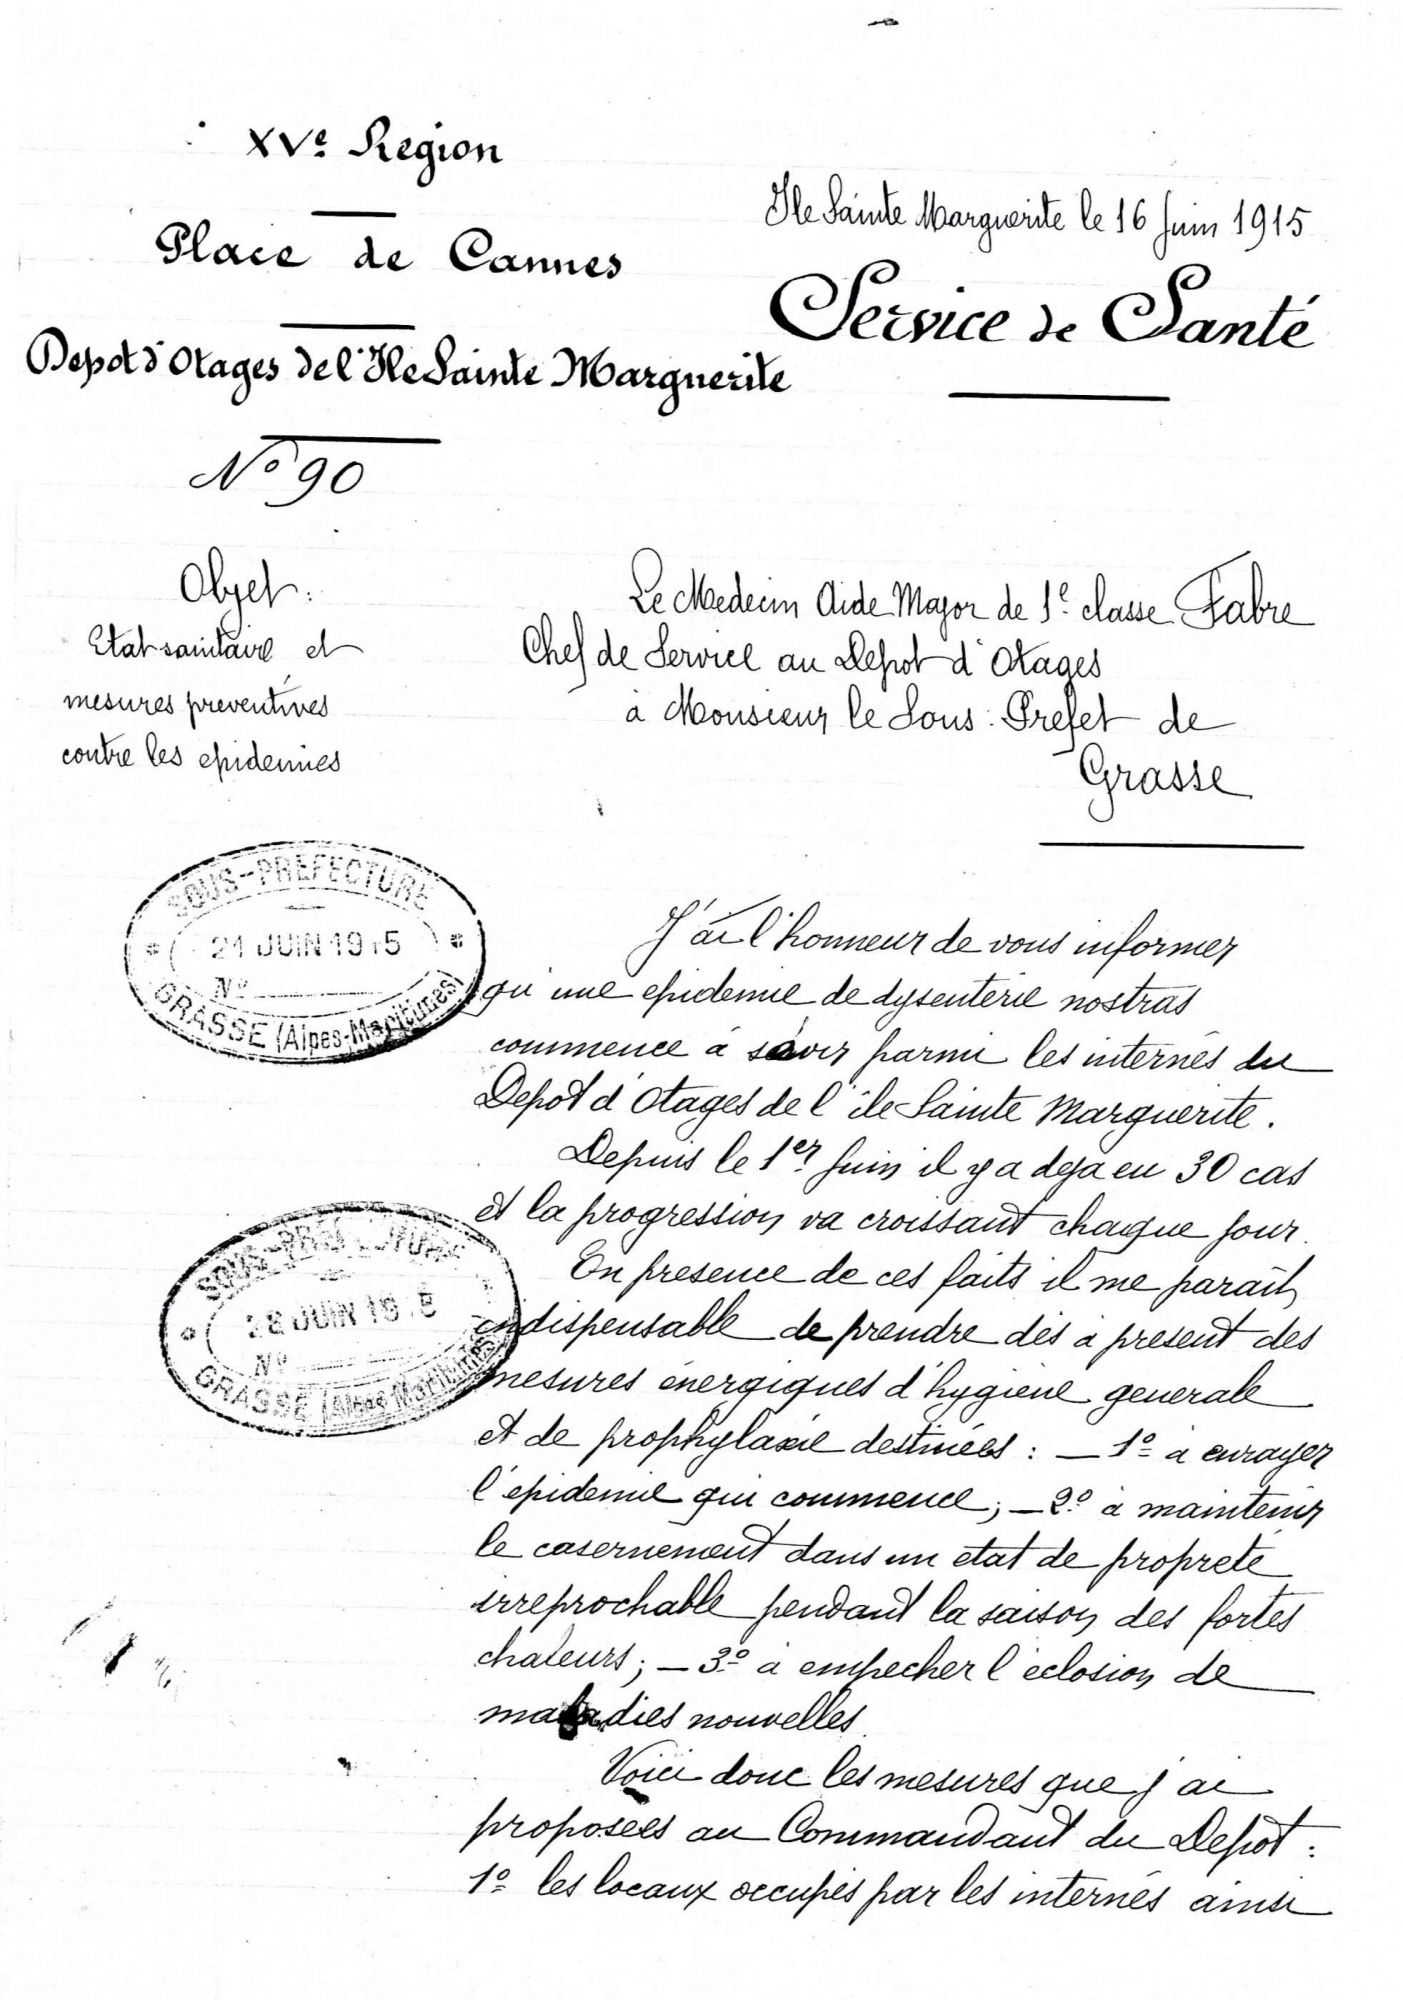 XVe Region
Place de Cannes
Depot d'Otages de l'Ile Sainte Marguerite
No 90
Ile Sainte Marguerite le 16 Juin 1915
Service de Santé
Objet :
Etat sanitaire et
mesures preventives
contre les epidemies
Le Medecin Aide Major de 1e classe Fabre
Chef de Service au Depot d'Otages
à Monsieur le Sous-Prefet de
Grasse
SOUS-PREFECTURE
21 JUIN 1915
No
GRASSE (Alpes-Maritimes)
J'ai l'honneur de vous informer
qu'une epidemie de dysenterie nostras
commence à sévir parmi les internés du
Depot d'Otages de l'île Sainte Marguerite.
Depuis le 1er Juin il y a deja eu 30 cas
et la progression va croissant chaque jour.
SOUS-PREFECTURE
28 JUIN 1915
No
GRASSE (Alpes-Maritimes)
En presence de ces faits il me parait
indispensable de prendre dès à present des
mesures énergiques d'hygiène generale
et de prophylaxie destinées : — 1o à enrayer
l'épidemie qui commence ; — 2o à maintenir
le casernement dans un etat de propreté
irreprochable pendant la saison des fortes
chaleurs ; — 3o à empecher l'éclosion de
maladies nouvelles.
Voici donc les mesures que j'ai
proposées au Commandant du Depot :
1o les locaux occupés par les internés ainsi